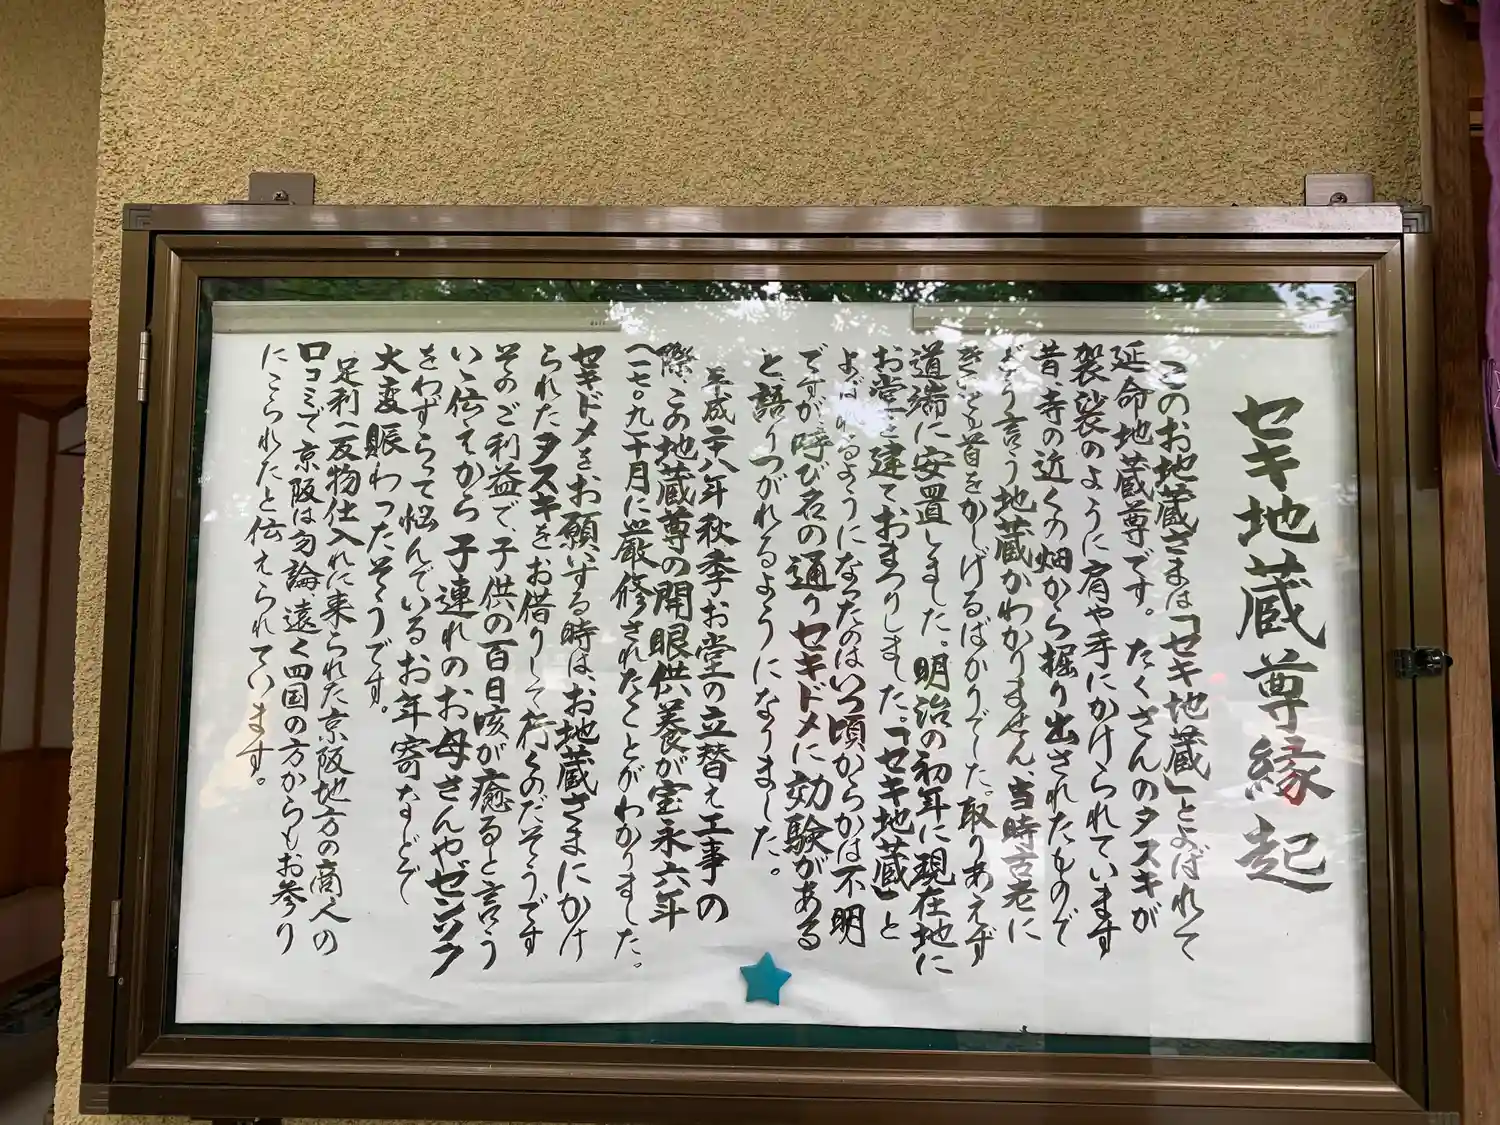 セキ地蔵尊縁起
このお地蔵さまは「セキ地蔵」とよばれて
延命地蔵尊です。たくさんのタスキが
袈裟のように肩や手にかけられています
昔、寺の近くの畑から掘り出されたもので
どう言う地蔵かわかりません、当時古老に
きいても首をかしげるばかりでした。取りあえず
道端に安置しました。明治の初年に現在地に
お堂を建ておまつりしました。「セキ地蔵」と
よばれるようになったのはいつ頃からかは不明
ですが呼び名の通りセキドメに効験がある
と語りつがれるようになりました。
平成二十八年秋季お堂の立替え工事の
際、この地蔵尊の開眼供養が宝永六年
(一七〇九)十月に厳修されたことがわかりました。
セキドメをお願いする時は、お地蔵さまにかけ
られたタスキをお借りして行くのだそうです
そのご利益で、子供の百日咳が癒ると言う
いい伝えから子連れのお母さんやゼンソク
をわずらって悩んでいるお年寄などで
大変賑わったそうです。
足利へ反物仕入れに来られた京阪地方の商人の
口コミで京阪は勿論遠く四国の方からもお参り
にこられたと伝えられています。